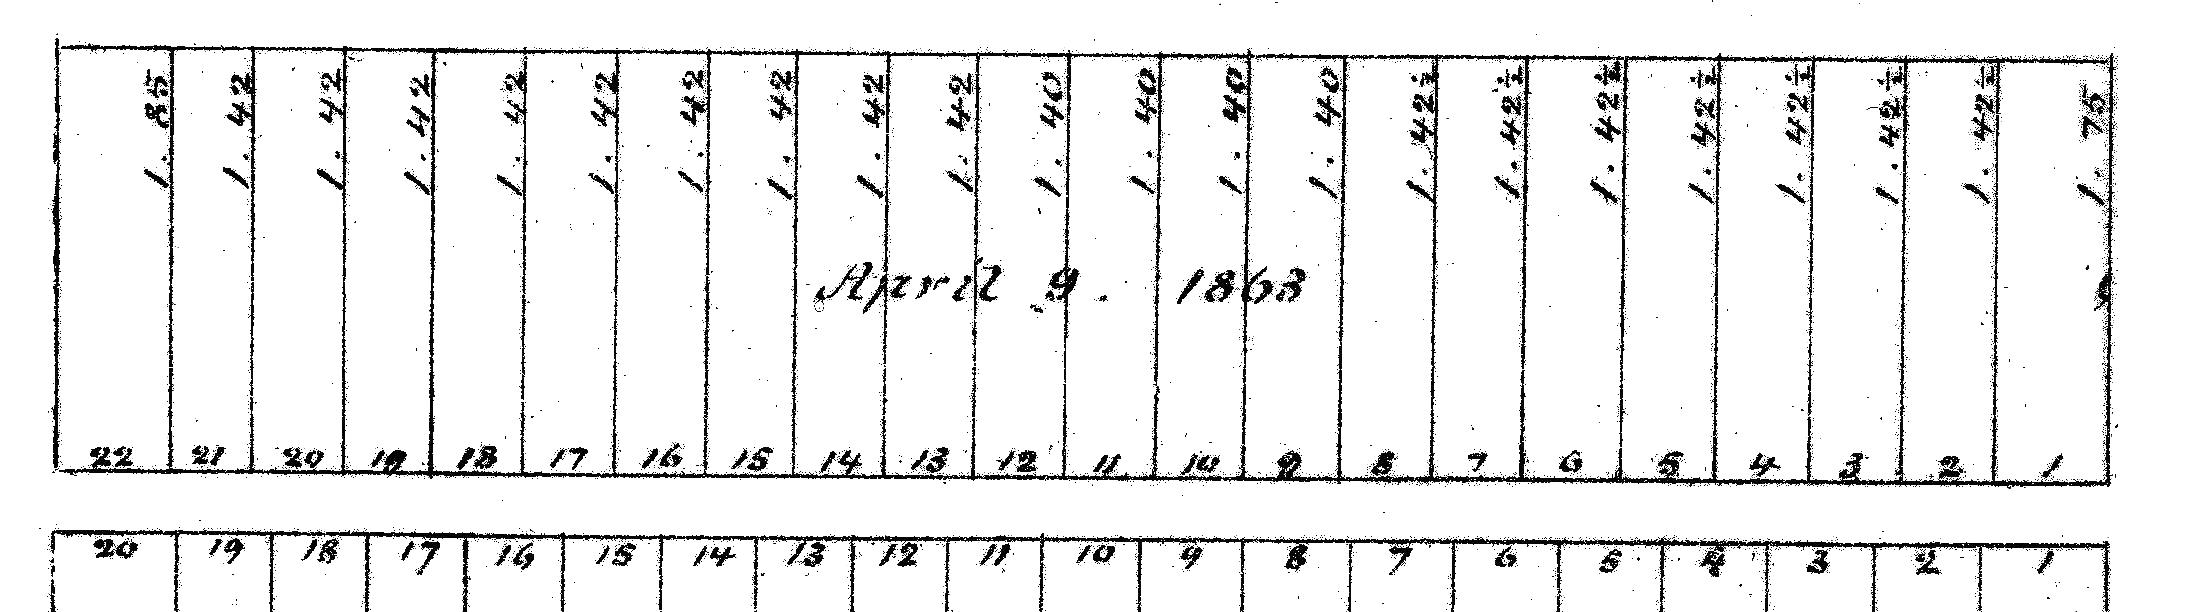 1.85 1.42 1.42 1.42 1.42 1.42 1.42 1.42 1.42 1.42 1.40 1.40 1.40 1.40 1.42½ 1.42½ 1.42½ 1.42½ 1.42½ 1.42½ 1.42½ 1.75
April 9. 1863
22 21 20 19 18 17 16 15 14 13 12 11 10 9 8 7 6 5 4 3 2 1
20 19 18 17 16 15 14 13 12 11 10 9 8 7 6 5 4 3 2 1